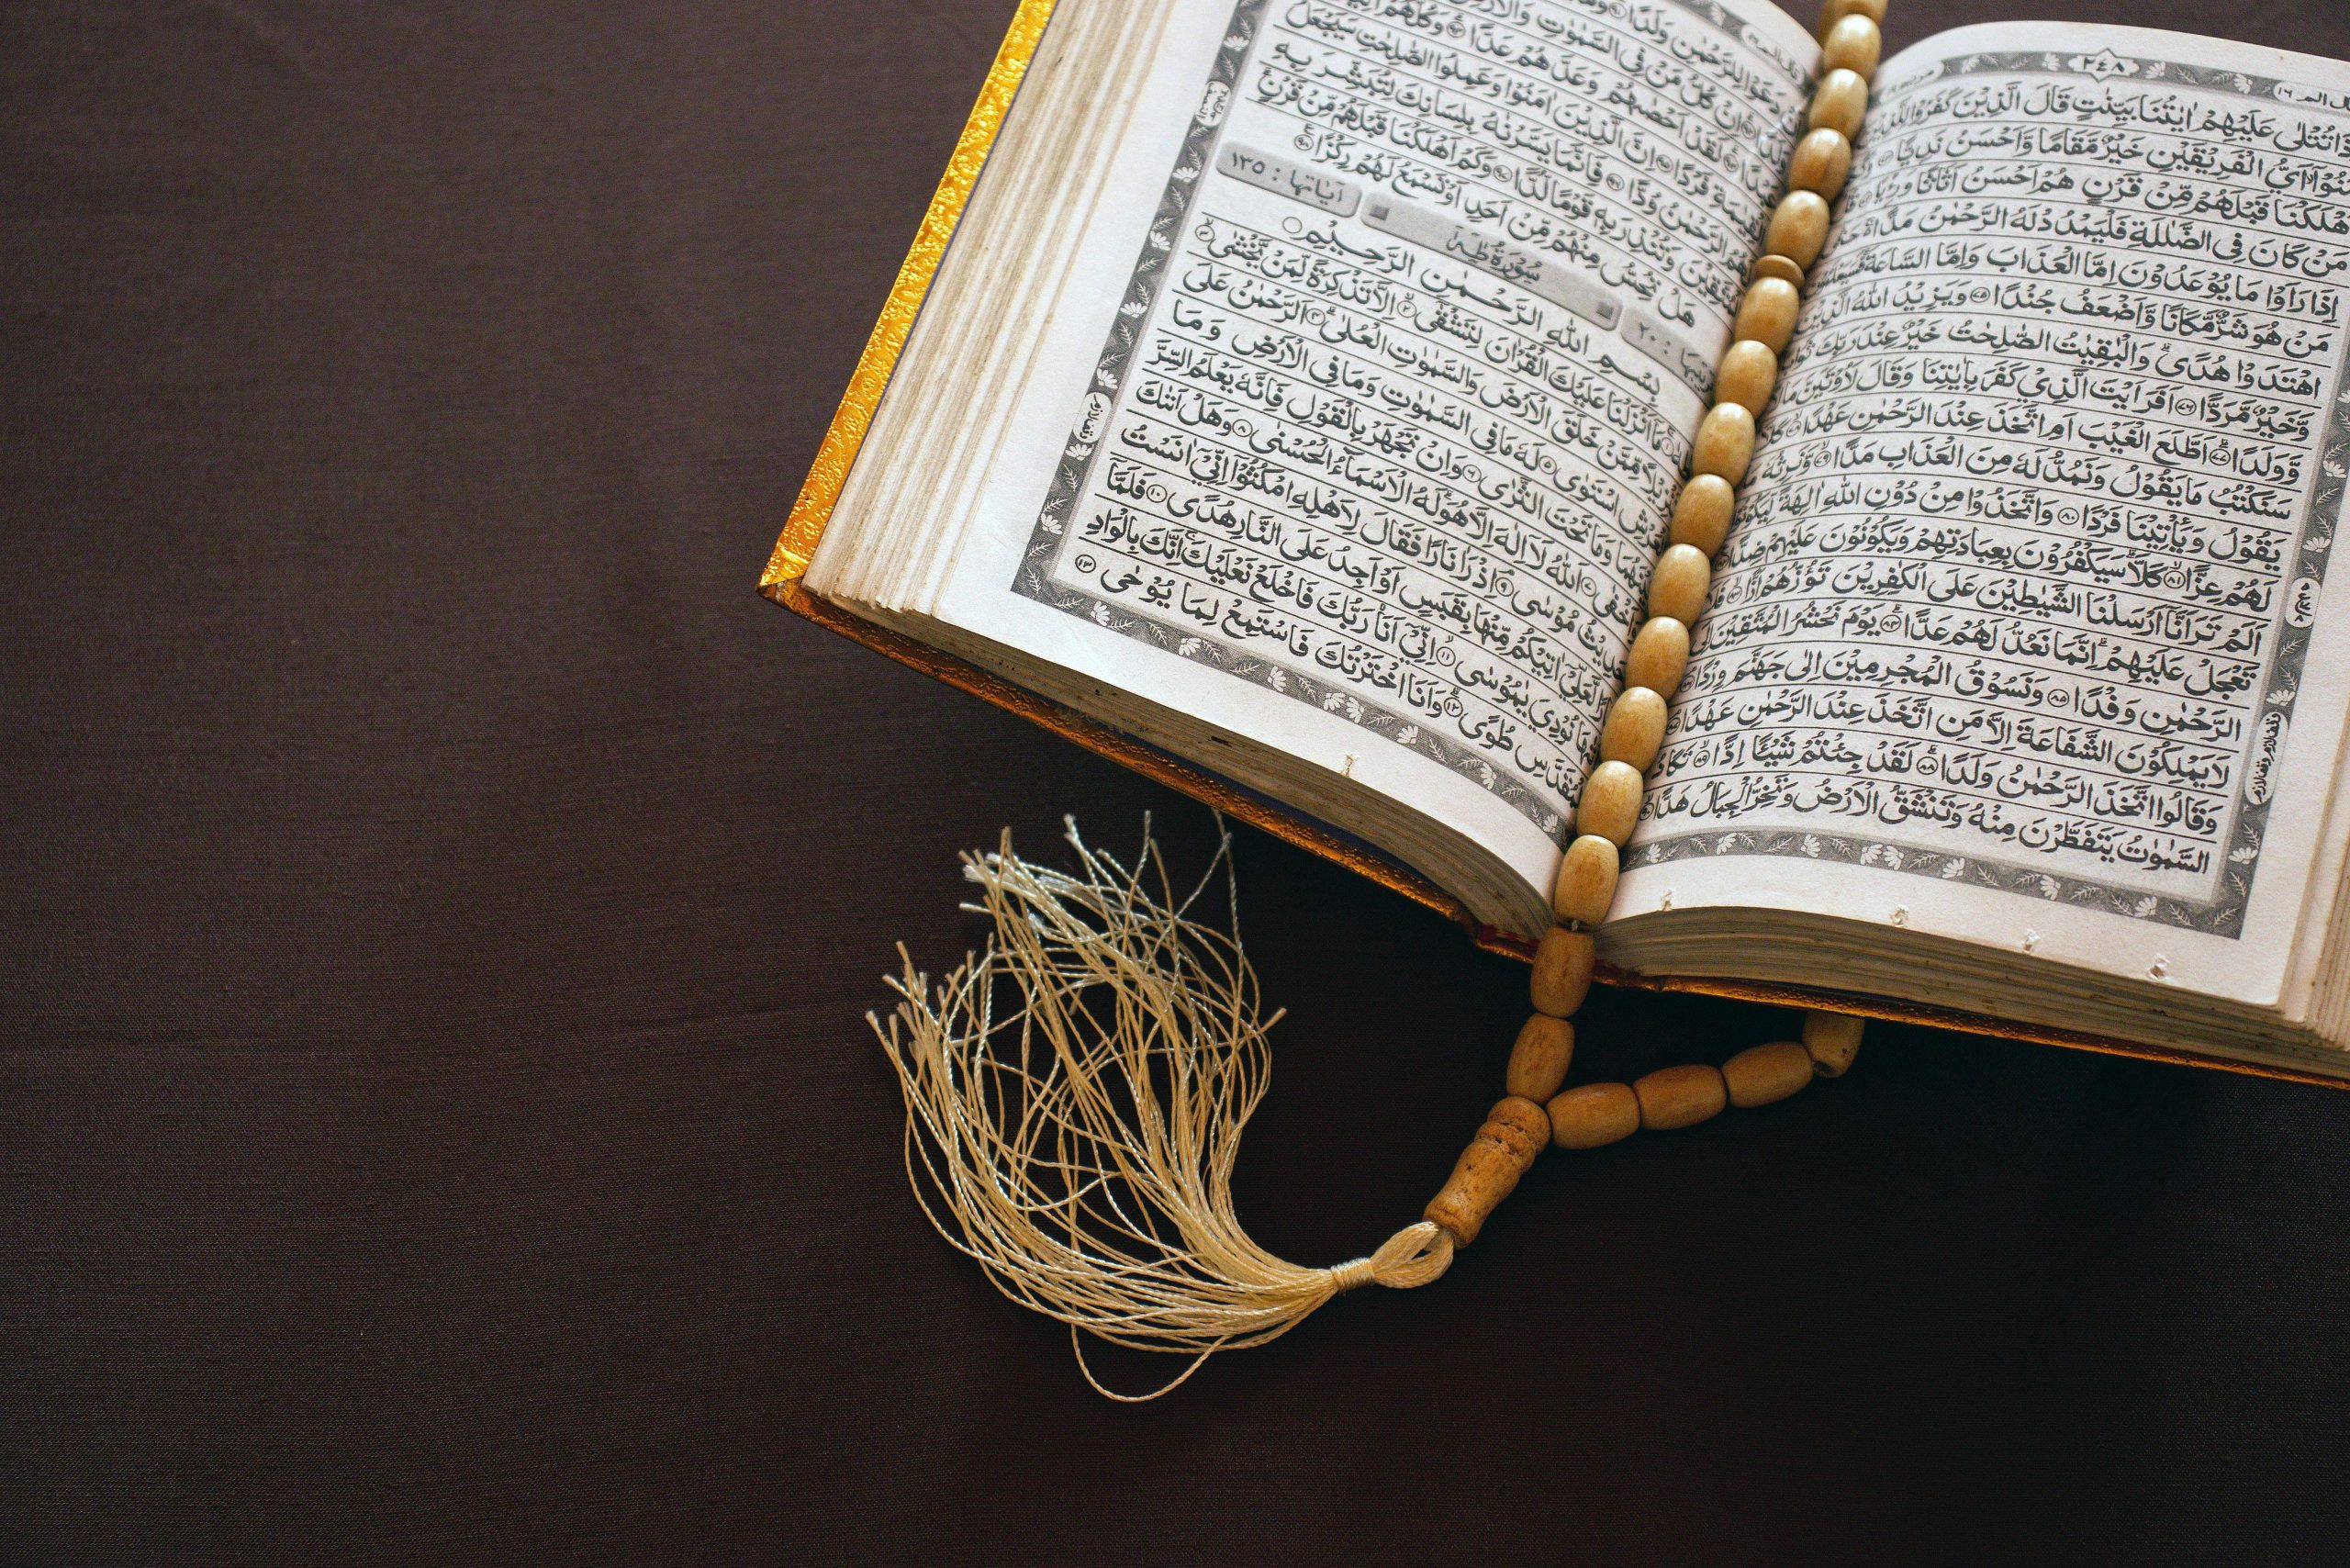 ٢٤٨
تُتْلٰى عَلَيْهِمْ اٰيٰتُنَا بَيِّنٰتٍ قَالَ الَّذِيْنَ كَفَرُوْا لِلَّذِيْنَ
اَيُّ الْفَرِيْقَيْنِ خَيْرٌ مَّقَامًا وَّاَحْسَنُ نَدِيًّا
اَهْلَكْنَا قَبْلَهُمْ مِّنْ قَرْنٍ هُمْ اَحْسَنُ اَثَاثًا وَّرِءْيًا
مَنْ كَانَ فِى الضَّلٰلَةِ فَلْيَمْدُدْ لَهُ الرَّحْمٰنُ مَدًّا
اِذَا رَاَوْا مَا يُوْعَدُوْنَ اِمَّا الْعَذَابَ وَاِمَّا السَّاعَةَ
مَنْ هُوَ شَرٌّ مَّكَانًا وَّاَضْعَفُ جُنْدًا ﴿٧٥﴾ وَيَزِيْدُ اللهُ الَّذِيْنَ
اهْتَدَوْا هُدًى وَالْبٰقِيٰتُ الصّٰلِحٰتُ خَيْرٌ عِنْدَ رَبِّكَ
وَّخَيْرٌ مَّرَدًّا ﴿٧٦﴾ اَفَرَاَيْتَ الَّذِيْ كَفَرَ بِاٰيٰتِنَا وَقَالَ لَاُوْتَيَنَّ مَا
وَّوَلَدًا ﴿٧٧﴾ اَطَّلَعَ الْغَيْبَ اَمِ اتَّخَذَ عِنْدَ الرَّحْمٰنِ عَهْدًا
سَنَكْتُبُ مَا يَقُوْلُ وَنَمُدُّ لَهٗ مِنَ الْعَذَابِ مَدًّا ﴿٧٩﴾ وَّنَرِثُهٗ
يَقُوْلُ وَيَاْتِيْنَا فَرْدًا ﴿٨٠﴾ وَاتَّخَذُوْا مِنْ دُوْنِ اللهِ اٰلِهَةً
لَهُمْ عِزًّا ﴿٨١﴾ كَلَّا سَيَكْفُرُوْنَ بِعِبَادَتِهِمْ وَيَكُوْنُوْنَ عَلَيْهِمْ ضِدًّا
اَلَمْ تَرَ اَنَّا اَرْسَلْنَا الشَّيٰطِيْنَ عَلَى الْكٰفِرِيْنَ تَؤُزُّهُمْ اَزًّا ﴿٨٣﴾ فَلَا
تَعْجَلْ عَلَيْهِمْ اِنَّمَا نَعُدُّ لَهُمْ عَدًّا ﴿٨٤﴾ يَوْمَ نَحْشُرُ الْمُتَّقِيْنَ اِلَى
الرَّحْمٰنِ وَفْدًا ﴿٨٥﴾ وَنَسُوْقُ الْمُجْرِمِيْنَ اِلٰى جَهَنَّمَ وِرْدًا
لَا يَمْلِكُوْنَ الشَّفَاعَةَ اِلَّا مَنِ اتَّخَذَ عِنْدَ الرَّحْمٰنِ عَهْدًا
وَقَالُوا اتَّخَذَ الرَّحْمٰنُ وَلَدًا ﴿٨٨﴾ لَقَدْ جِئْتُمْ شَيْئًا اِدًّا ﴿٨٩﴾ تَكَادُ
السَّمٰوٰتُ يَتَفَطَّرْنَ مِنْهُ وَتَنْشَقُّ الْاَرْضُ وَتَخِرُّ الْجِبَالُ هَدًّا
دَعَوْا لِلرَّحْمٰنِ وَلَدًا
اِنْ كُلُّ مَنْ فِى السَّمٰوٰتِ وَالْاَرْضِ
لَقَدْ اَحْصٰهُمْ وَعَدَّهُمْ عَدًّا ﴿٩٤﴾ وَكُلُّهُمْ
فَرْدًا ﴿٩٥﴾ اِنَّ الَّذِيْنَ اٰمَنُوْا وَعَمِلُوا الصّٰلِحٰتِ سَيَجْعَلُ
الرَّحْمٰنُ وُدًّا ﴿٩٦﴾ فَاِنَّمَا يَسَّرْنٰهُ بِلِسَانِكَ لِتُبَشِّرَ بِهِ
وَتُنْذِرَ بِهٖ قَوْمًا لُّدًّا ﴿٩٧﴾ وَكَمْ اَهْلَكْنَا قَبْلَهُمْ مِّنْ قَرْنٍ
هَلْ تُحِسُّ مِنْهُمْ مِّنْ اَحَدٍ اَوْ تَسْمَعُ لَهُمْ رِكْزًا ﴿٩٨﴾
٢٠ سُوْرَةُ طٰهٰ آياتها : ١٣٥
بِسْمِ اللهِ الرَّحْمٰنِ الرَّحِيْمِ
مَا اَنْزَلْنَا عَلَيْكَ الْقُرْاٰنَ لِتَشْقٰى ﴿٢﴾ اِلَّا تَذْكِرَةً لِّمَنْ يَّخْشٰى ﴿٣﴾
مِّمَّنْ خَلَقَ الْاَرْضَ وَالسَّمٰوٰتِ الْعُلٰى ﴿٤﴾ اَلرَّحْمٰنُ عَلَى
الْعَرْشِ اسْتَوٰى ﴿٥﴾ لَهٗ مَا فِى السَّمٰوٰتِ وَمَا فِى الْاَرْضِ وَمَا
بَيْنَهُمَا وَمَا تَحْتَ الثَّرٰى ﴿٦﴾ وَاِنْ تَجْهَرْ بِالْقَوْلِ فَاِنَّهٗ يَعْلَمُ السِّرَّ
وَاَخْفٰى ﴿٧﴾ اَللهُ لَا اِلٰهَ اِلَّا هُوَ لَهُ الْاَسْمَاءُ الْحُسْنٰى ﴿٨﴾ وَهَلْ اَتٰىكَ
حَدِيْثُ مُوْسٰى ﴿٩﴾ اِذْ رَاٰ نَارًا فَقَالَ لِاَهْلِهِ امْكُثُوْا اِنِّيْ اٰنَسْتُ
لَّعَلِّيْ اٰتِيْكُمْ مِّنْهَا بِقَبَسٍ اَوْ اَجِدُ عَلَى النَّارِ هُدًى ﴿١٠﴾ فَلَمَّا
اَتٰىهَا نُوْدِيَ يٰمُوْسٰى ﴿١١﴾ اِنِّيْ اَنَا رَبُّكَ فَاخْلَعْ نَعْلَيْكَ اِنَّكَ بِالْوَادِ
الْمُقَدَّسِ طُوًى ﴿١٢﴾ وَاَنَا اخْتَرْتُكَ فَاسْتَمِعْ لِمَا يُوْحٰى ﴿١٣﴾